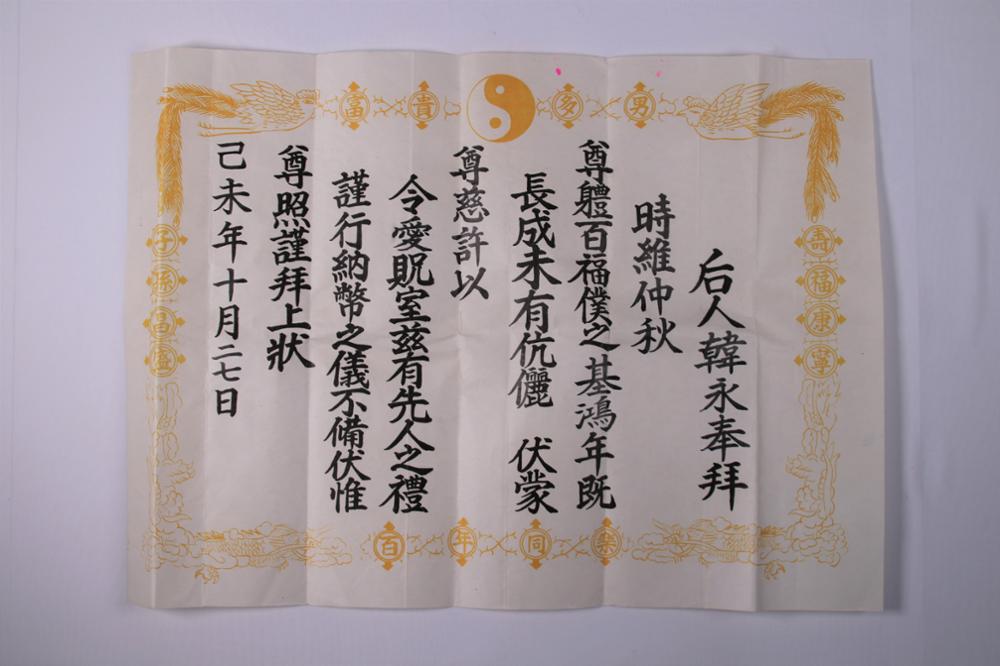 富貴 多男
壽福康寧
子孫昌盛
百年同樂
后人韓永奉拜
時維仲秋
尊軆百福僕之基鴻年既
長成未有伉儷 伏蒙
尊慈許以
令愛貺室玆有先人之禮
謹行納幣之儀不備伏惟
尊照謹拜上狀
己未年十月二七日